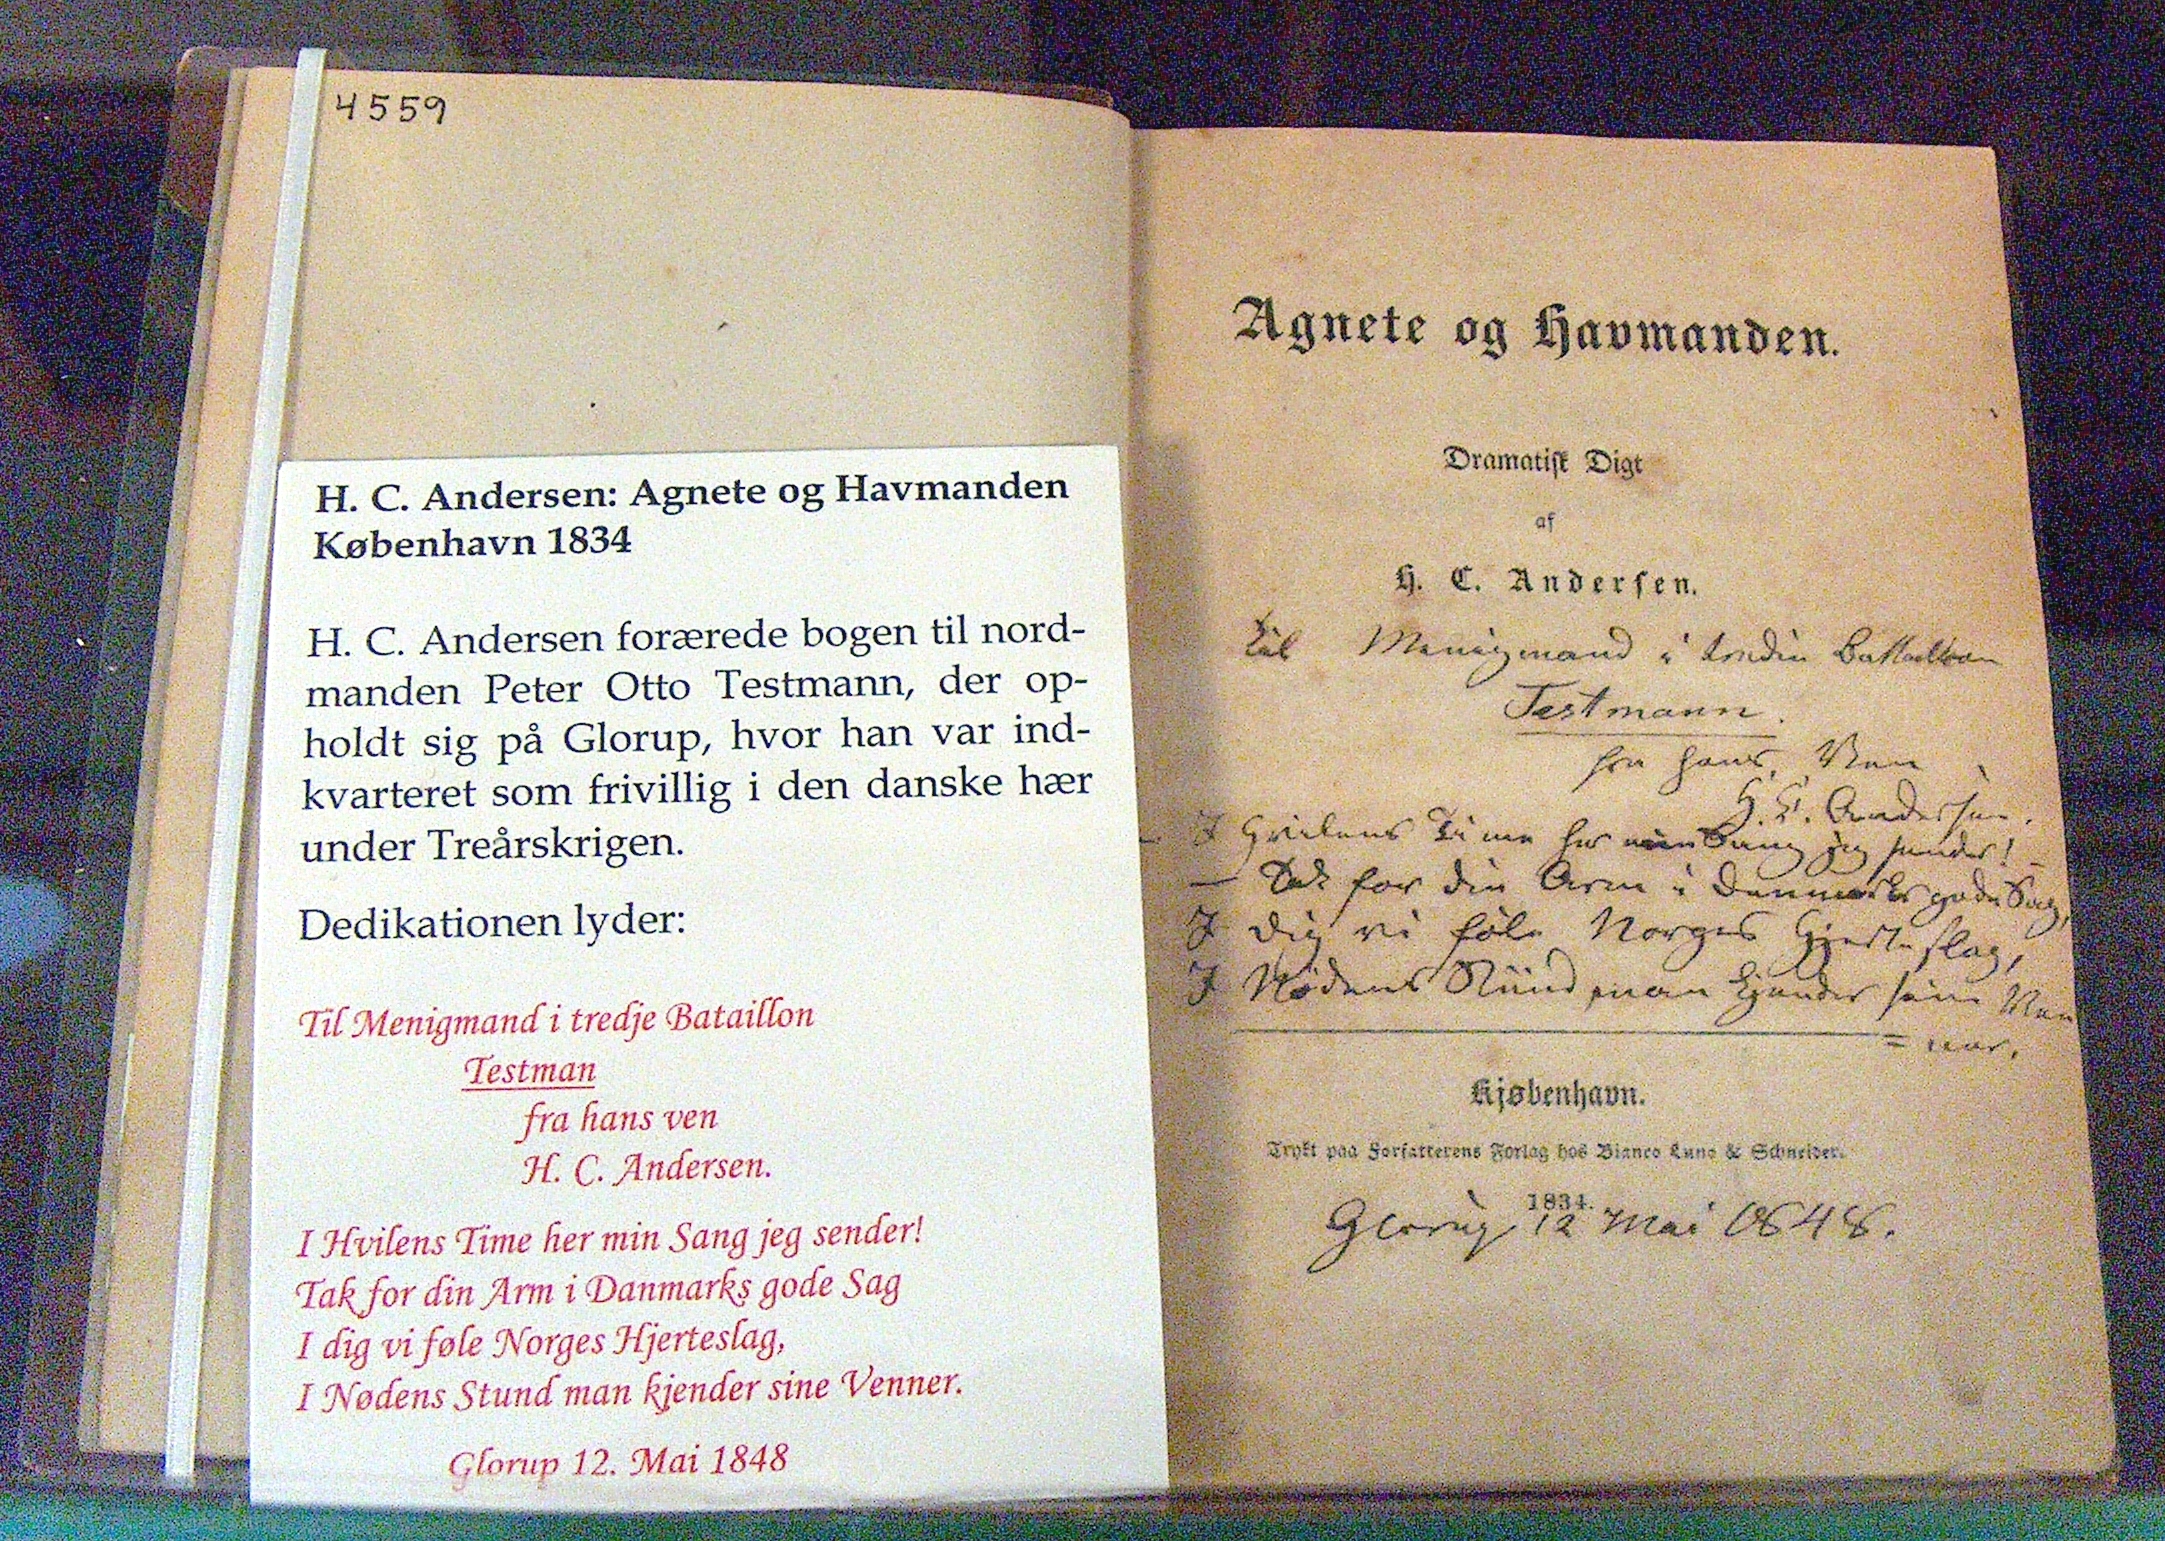 4559
H. C. Andersen: Agnete og Havmanden
København 1834
H. C. Andersen forærede bogen til nord-
manden Peter Otto Testmann, der op-
holdt sig på Glorup, hvor han var ind-
kvarteret som frivillig i den danske hær
under Treårskrigen.
Dedikationen lyder:
Til Menigmand i tredje Bataillon
Testman
fra hans ven
H. C. Andersen.
I Hvilens Time her min Sang jeg sender!
Tak for din Arm i Danmarks gode Sag
I dig vi føle Norges Hjerteslag,
I Nødens Stund man kjender sine Venner.
Glorup 12. Mai 1848
Agnete og Havmanden.
Dramatisk Digt
af
H. C. Andersen.
Til Menigmand i tredie Battaillon
Testmann.
fra hans Ven
H. C. Andersen.
I Hvilens Time her min Sang jeg sender!
– Tak for din Arm i Danmarks gode Sag,
I dig vi føle Norges Hjerteslag,
I Nødens Stund man kjender sine Ven
= ner.
Kjøbenhavn.
Trykt paa Forfatterens Forlag hos Bianco Luno & Schneider.
1834.
Glorup 12 Mai 1848.